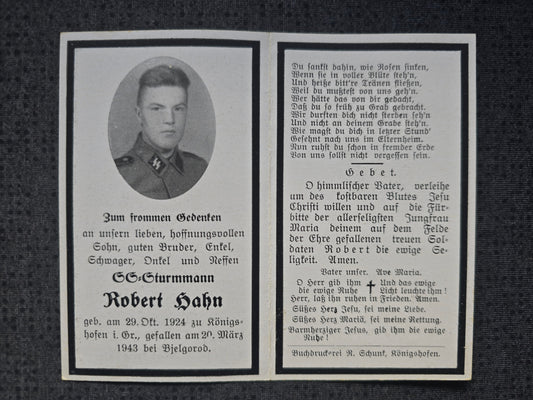 Zum frommen Gedenken
an unsern lieben, hoffnungsvollen
Sohn, guten Bruder, Enkel,
Schwager, Onkel und Neffen
SS-Sturmmann
Robert Hahn
geb. am 29. Okt. 1924 zu Königs-
hofen i. Gr., gefallen am 20. März
1943 bei Bjelgorod.
Du sankst dahin, wie Rosen sinken,
Wenn sie in voller Blüte steh'n,
Und heiße bitt're Tränen fließen,
Weil du mußtest von uns geh'n.
Wer hätte das von dir gedacht,
Daß du so früh zu Grab gebracht.
Wir durften dich nicht sterben seh'n
Und nicht an deinem Grabe steh'n.
Wie magst du dich in letzter Stund'
Gesehnt nach uns im Elternheim.
Nun ruhst du schon in fremder Erde
Von uns sollst nicht vergessen sein.
Gebet.
O himmlischer Vater, verleihe
um des kostbaren Blutes Jesu
Christi willen und auf die Für-
bitte der allerseligsten Jungfrau
Maria deinem auf dem Felde
der Ehre gefallenen treuen Sol-
daten Robert die ewige Se-
ligkeit. Amen.
Vater unser. Ave Maria.
O Herr gib ihm ✝ Und das ewige
die ewige Ruhe Licht leuchte ihm!
Herr, laß ihn ruhen in Frieden. Amen.
Süßes Herz Jesu, sei meine Liebe.
Süßes Herz Mariä, sei meine Rettung.
Barmherziger Jesus, gib ihm die ewige
Ruhe!
Buchdruckerei R. Schunk, Königshofen.